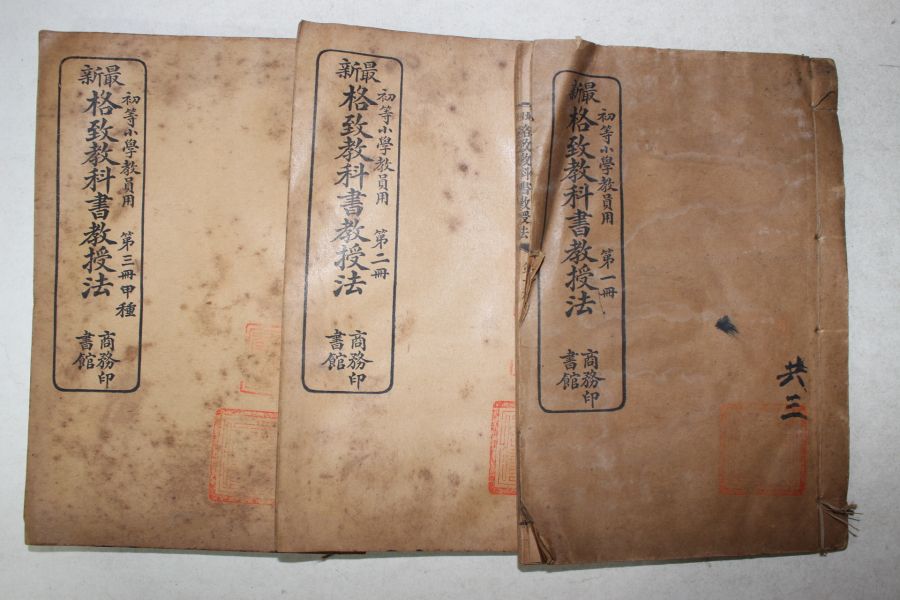 最新
初等小學教員用 第一冊
格致教科書教授法
商務印書館
共三
最新
初等小學教員用 第二冊
格致教科書教授法
商務印書館
最新
初等小學教員用 第三冊甲種
格致教科書教授法
商務印書館